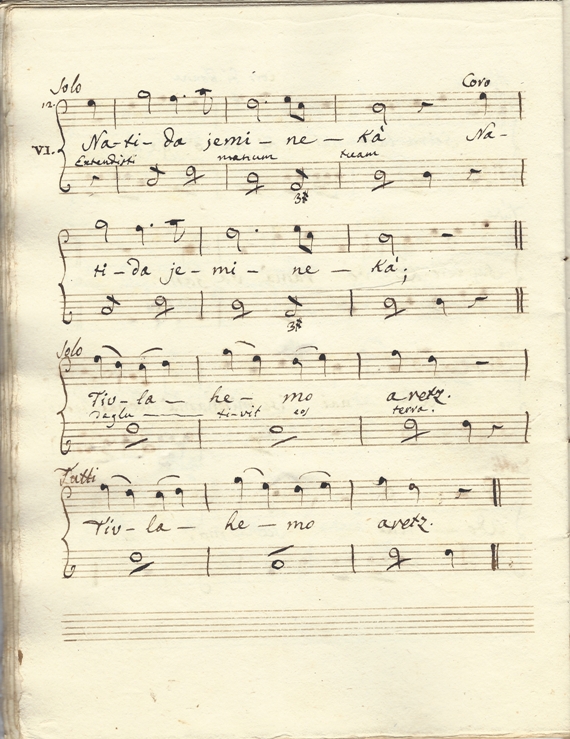 Solo Coro
12. VI.
Na-ti-da jemi-ne-kà Na-
Extendisti manum tuam
3#
ti-da je-mi-ne-kà;
3#
Solo
Tiv-la-he-mo aretz.
Deglu-ti-vit eos terra.
Tutti
Tiv-la-he-mo aretz.